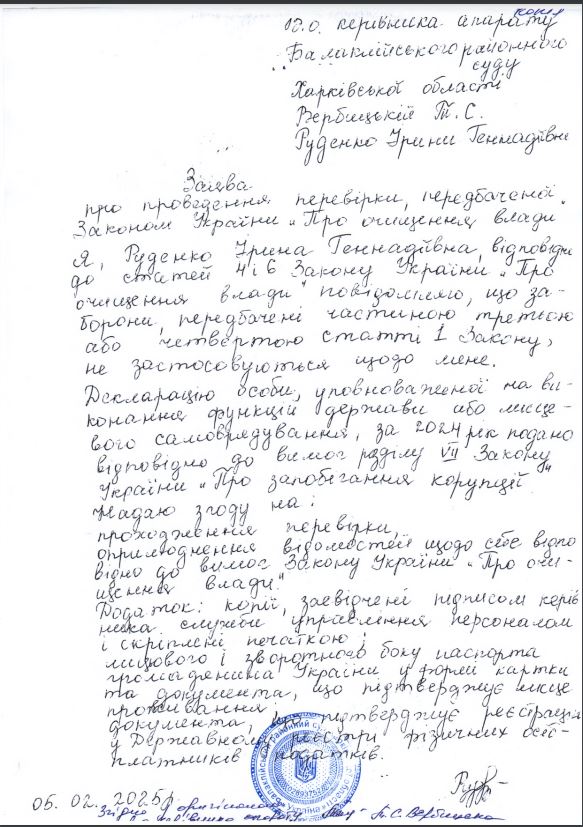 копія
В.о. керівника апарату
Балаклійського районного
суду
Харківської області
Вербицькій Т.С.
Руденко Ірини Геннадіївни
Заява
про проведення перевірки, передбаченої
Законом України „Про очищення влади
Я, Руденко Ірина Геннадіївна, відповідно
до статей 4 і 6 Закону України „Про
очищення влади" повідомляю, що за-
борони, передбачені частиною третьою
або четвертою статті 1 Закону,
не застосовуються щодо мене.
Декларацію особи, уповноваженої на ви-
конання функцій держави або місце-
вого самоврядування, за 2024 рік подано
відповідно до вимог розділу VII Закону
України „Про запобігання корупції"
Надаю згоду на:
проходження перевірки,
оприлюднення відомостей щодо себе відпо
відно до вимог Закону України „Про очи-
щення влади".
Додаток: копії, засвідчені підписом керів
ника служби управління персоналом
і скріплені печаткою:
лицьового і зворотного боку паспорта
громадянина України у формі картки
та документа, що підтверджує місце
проживання
документа, що підтверджує реєстрацію
у Державному реєстрі фізичних осіб-
платників податків.
05. 02. 2025р.
Згідно з оригіналом
Т.С. Вербицька